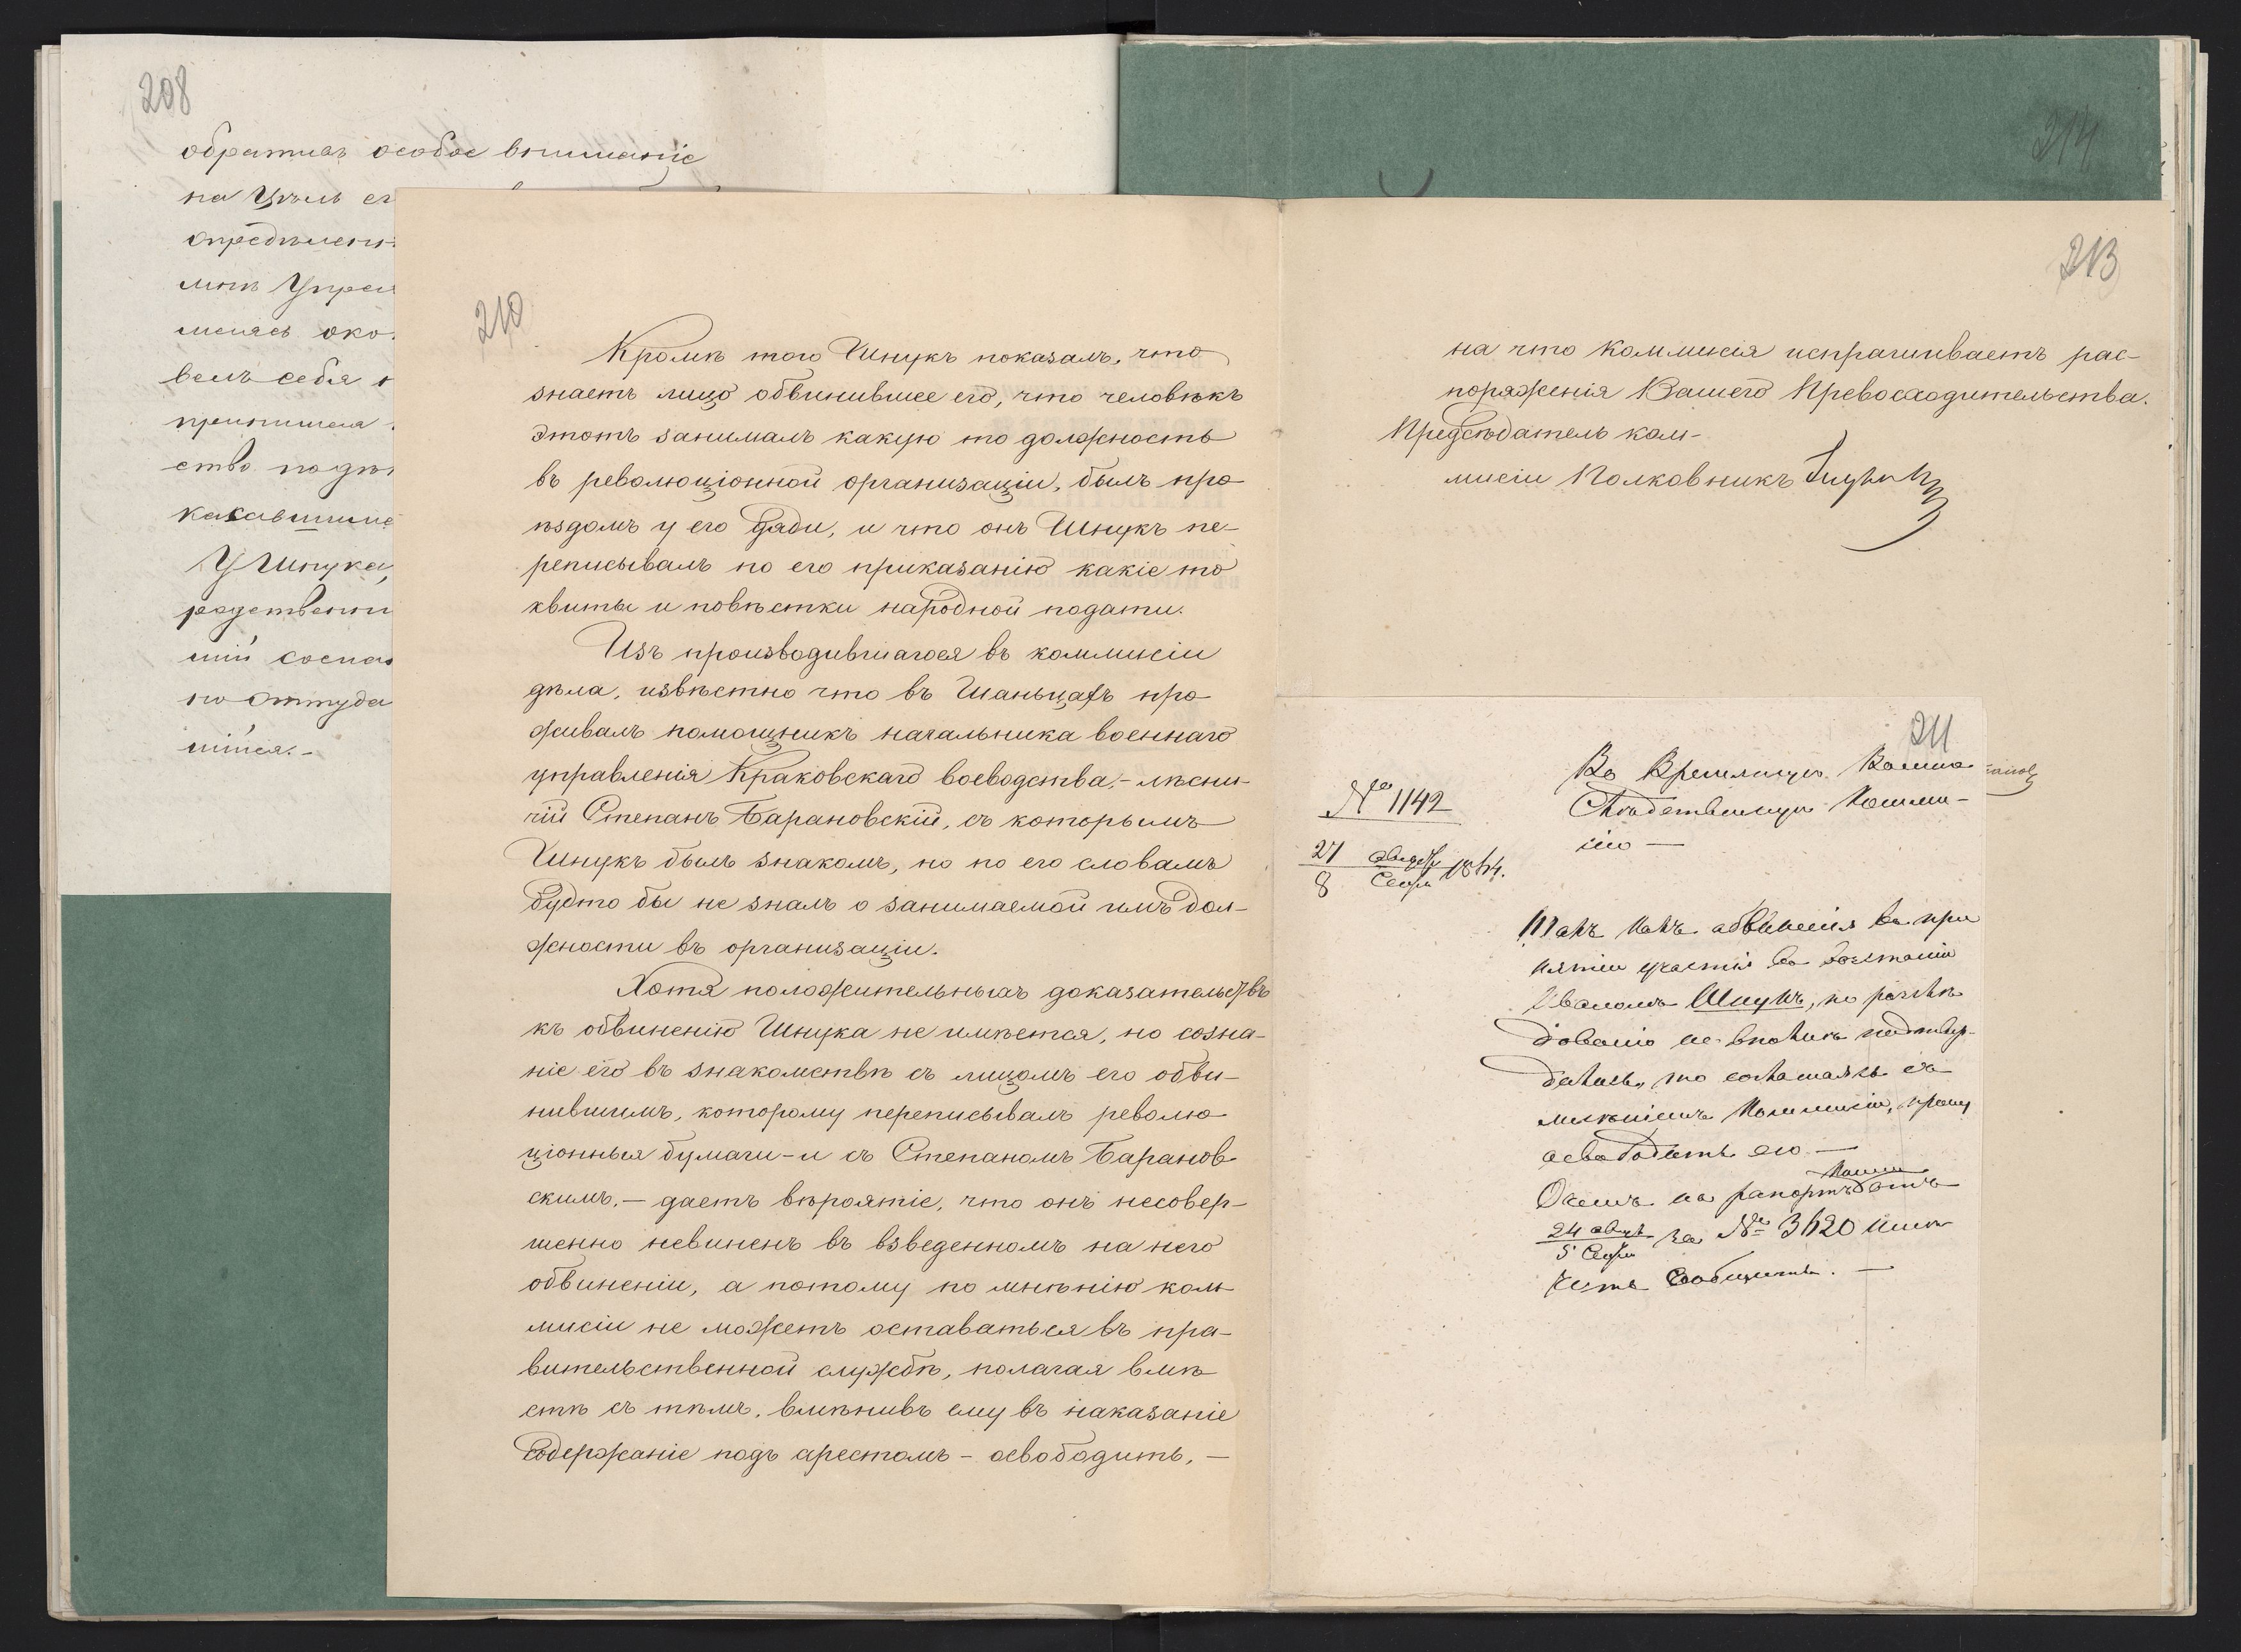 208
обративъ особое вниманіе
на
опредѣлен
мѣсяцъ око
велъ себя
ство
касавшіися
У Шнука,
родственни
но оттуда
210
Кромѣ того Шнукъ показалъ, что
знаетъ лицо обвинившее его, что человѣкъ
этотъ занималъ какую то должность
въ революціонной организаціи, былъ про-
ѣздомъ у его дяди, и что онъ Шнукъ пе-
реписывалъ по его приказанію какіе то
квиты и повѣстки народной подати.
Изъ производившагося въ коммисіи
дѣла, извѣстно что въ Шаньцахъ про-
живалъ помощникъ начальника военнаго
управленія Краковскаго воеводства, - лѣсни-
чій Степанъ Барановскій, съ которымъ
Шнукъ былъ знакомъ, но по его словамъ
будто бы не зналъ о занимаемой имъ дол-
жности въ организаціи.
Хотя положительныхъ доказательствъ
къ обвиненію Шнука не имѣется, но созна-
ніе его въ знакомствѣ съ лицомъ его обви-
нившимъ, которому переписывалъ револю-
ціонныя бумаги - и съ Степаномъ Баранов-
скимъ, - даетъ вѣроятіе, что онъ несовер-
шенно невиненъ въ взведенномъ на него
обвиненіи, а потому по мнѣнію ком-
мисіи не можетъ оставаться въ пра-
вительственной службѣ, полагая вмѣ-
стѣ съ тѣмъ, вмѣнивъ ему въ наказаніе
содержаніе подъ арестомъ - освободить, -
214
213
на что коммисія испрашиваетъ рас-
поряженія Вашего Превосходительства.
Предсѣдатель ком-
мисіи Полковникъ
211
Во Временную Военно
Слѣдственную Комми-
сію —
№ 1142
27 августа
8 Сентя 1864.
Такъ какъ обвиненія въ при
нятіи участія въ возстаніи
Иваномъ Шнукъ, по разслѣ
дованію не вполнѣ подтвер-
дились, то соглашаясь съ
мнѣніемъ Коммисіи, прошу
освободить его —
О чемъ на рапортъ Комми отъ
24 авгус
5 Сентя за № 3620 имѣю
честь сообщить. —